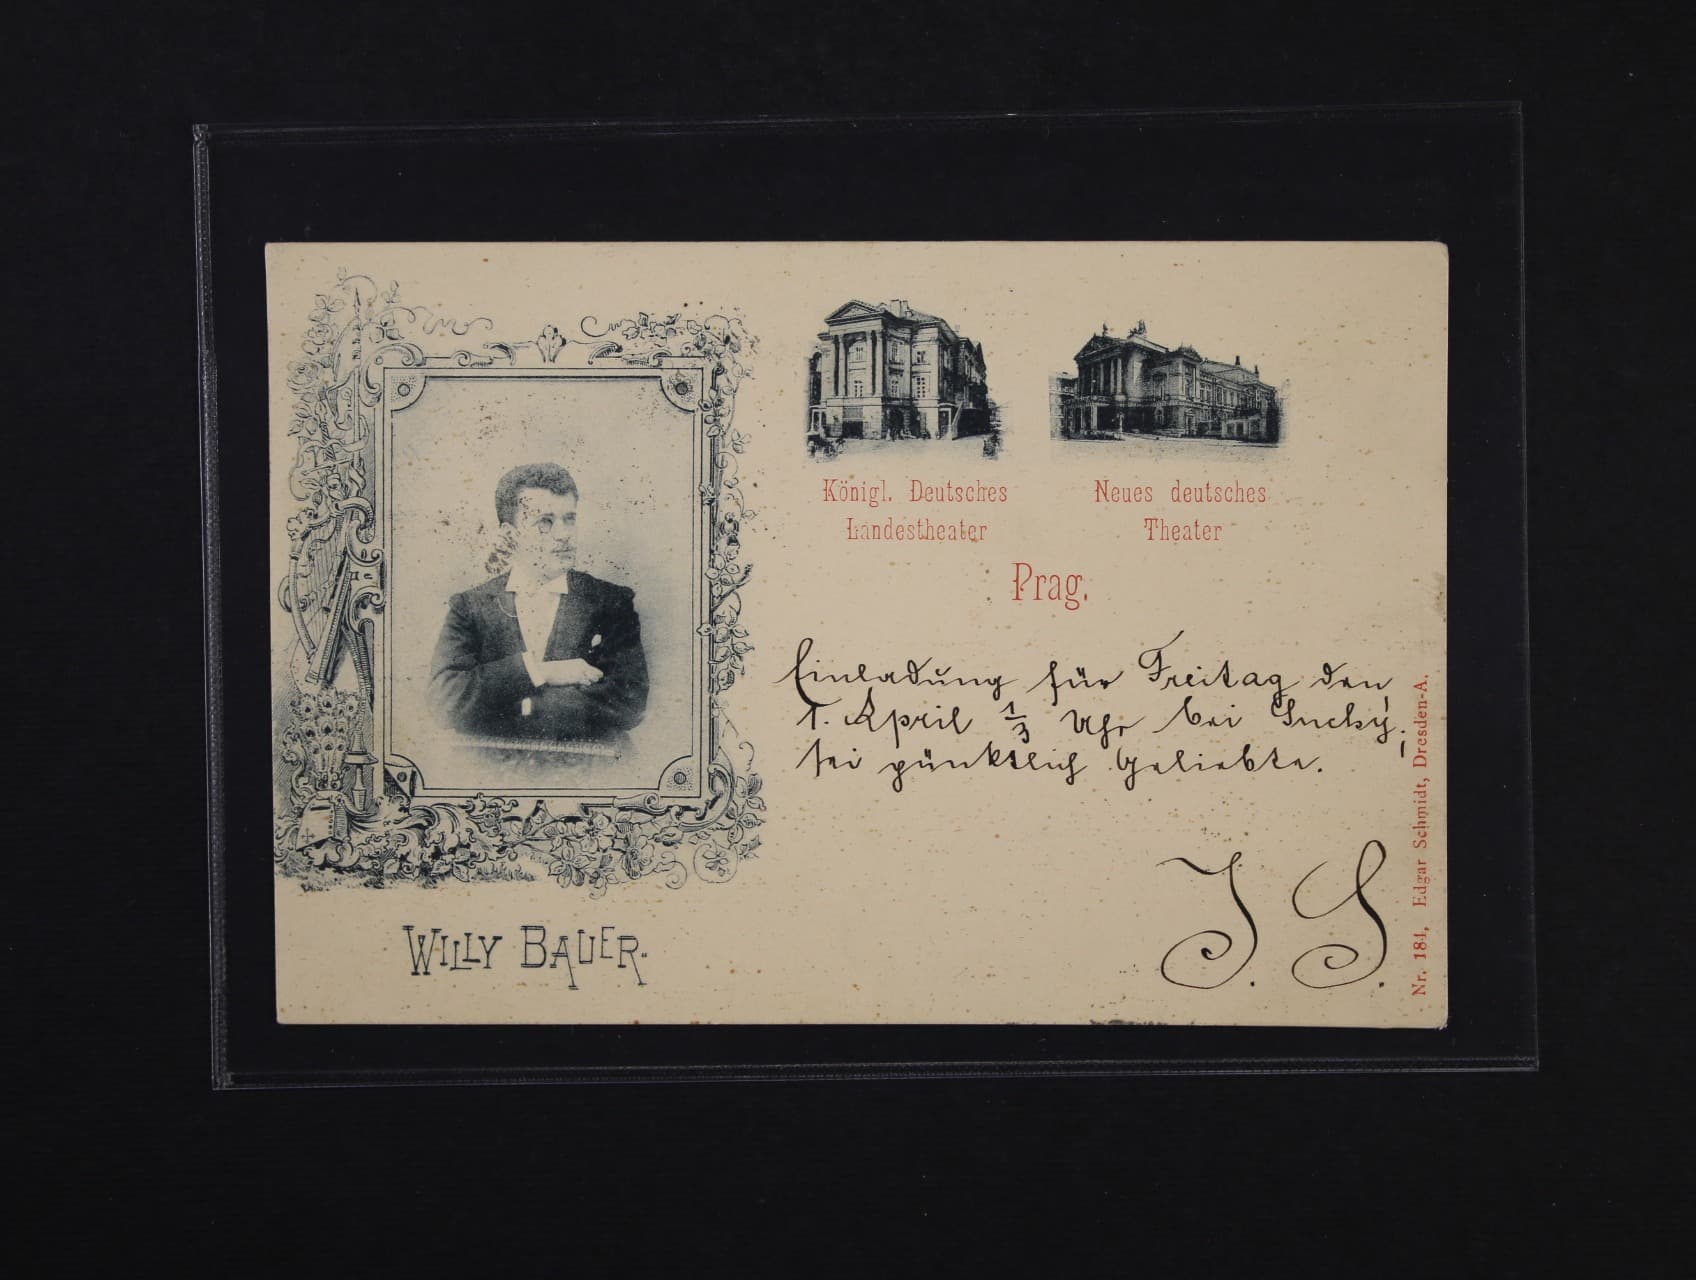 Königl. Deutsches
Landestheater
Neues deutsches
Theater
Prag.
Einladung für Freitag den
1. April ½3 Uhr bei Suchý,
sei pünktlich Geliebte.
J. S.
WILLY BAUER.
Nr. 184, Edgar Schmidt, Dresden-A.